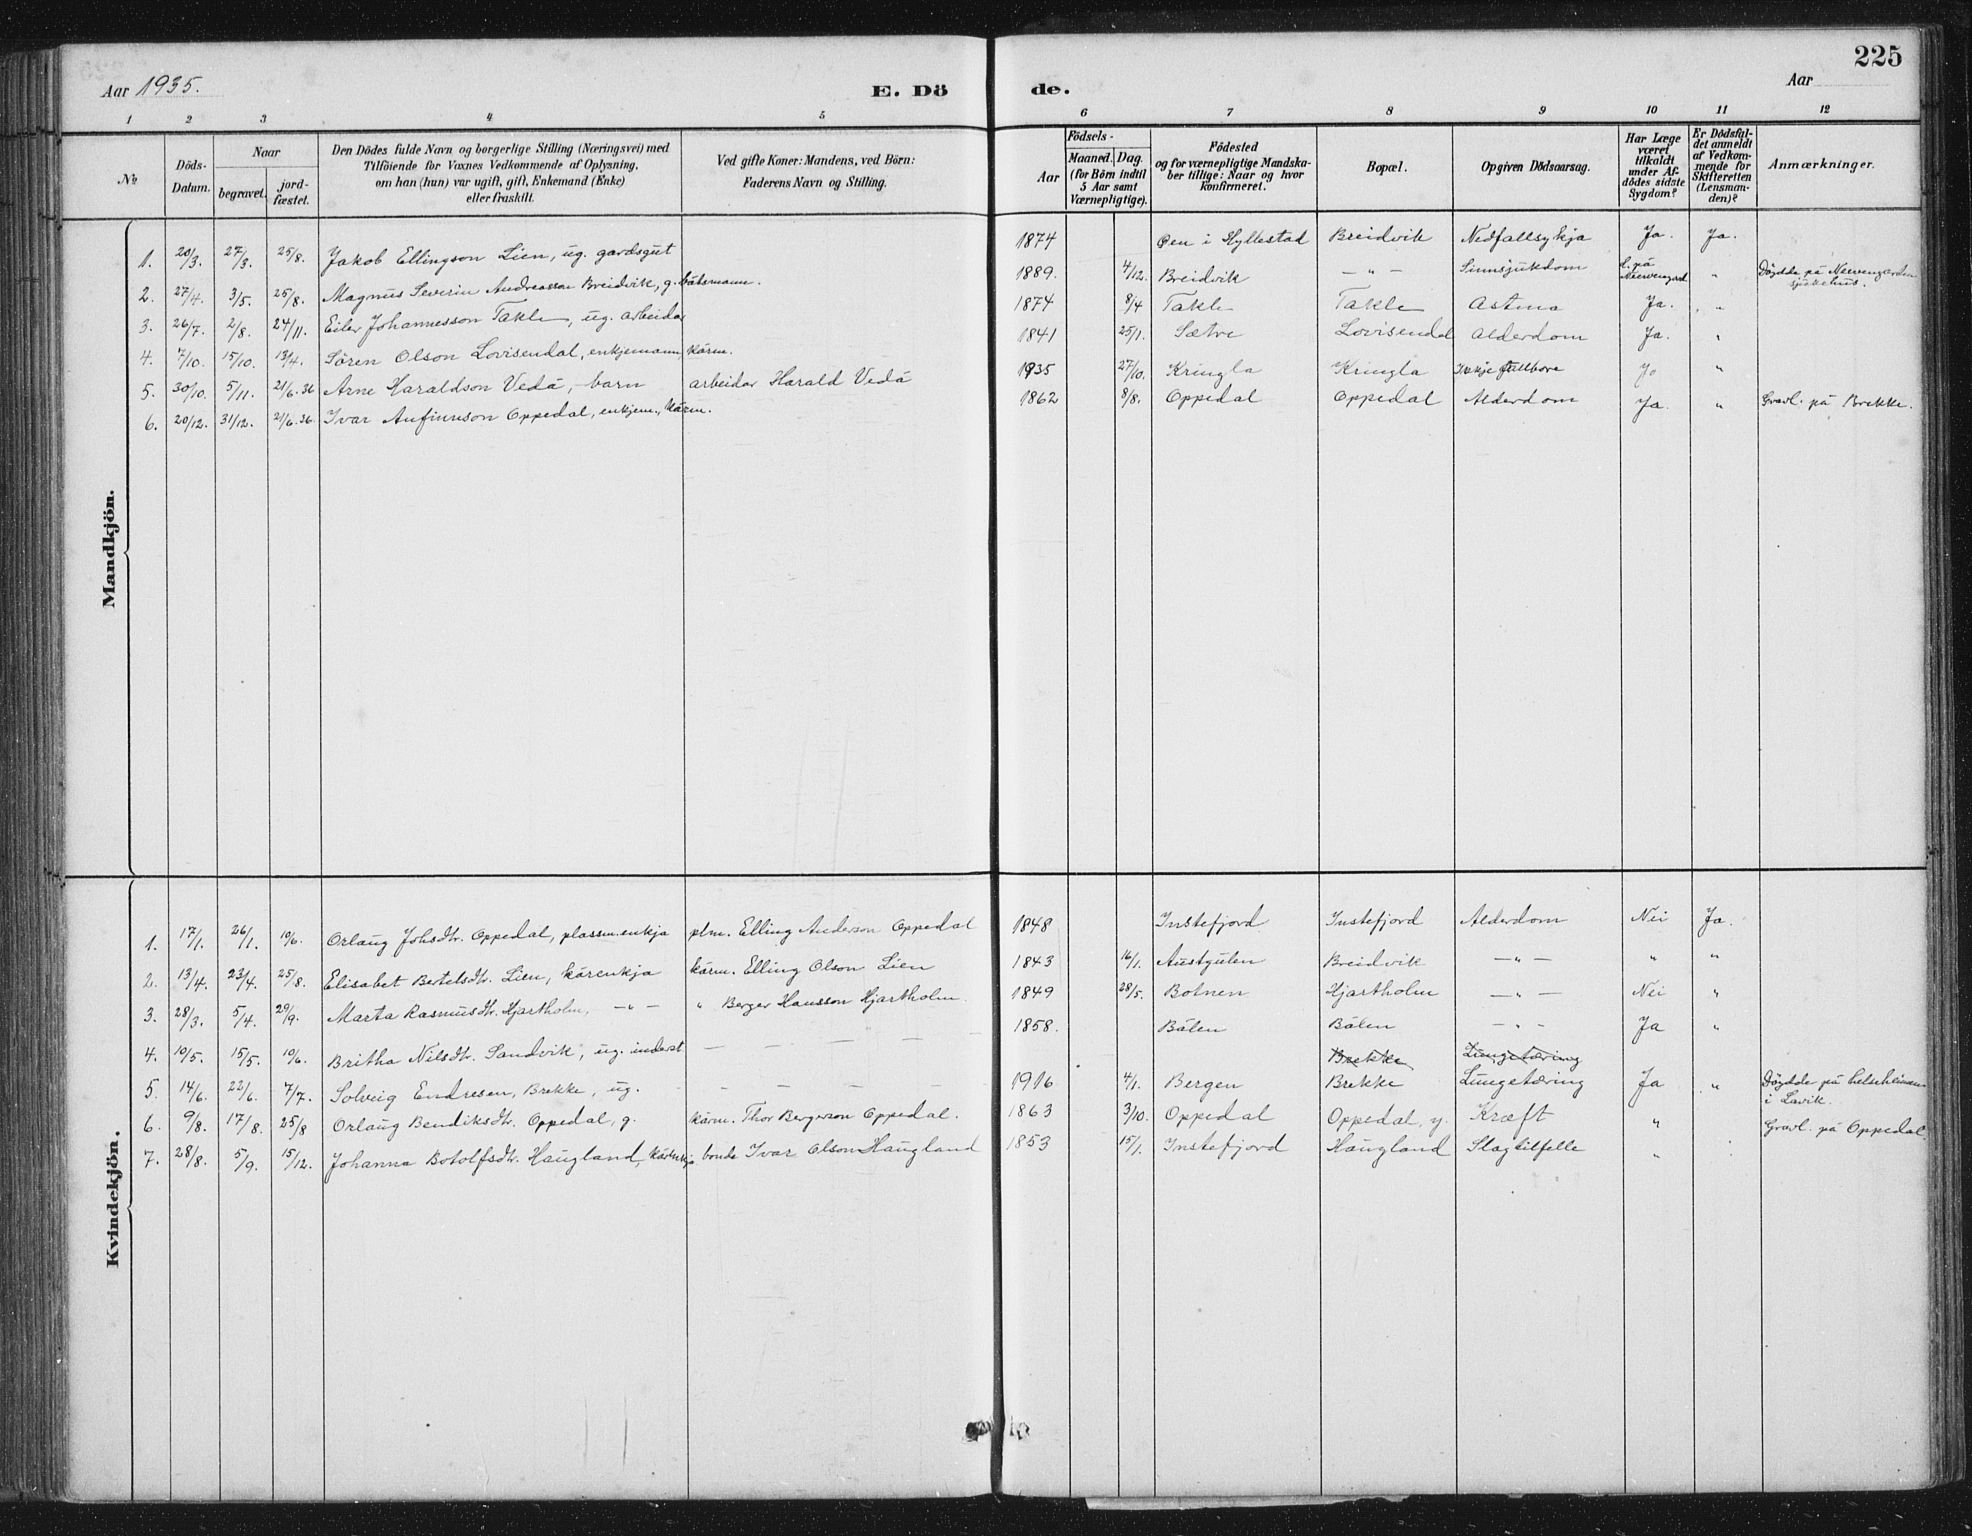 225
Aar 1935. E. Dö de. Aar
1 2 3 4 5 6 7 8 9 10 11 12
No
Döds-Datum.
Naar
begravet.
jord-fæstet.
Den Dödes fulde Navn og borgerlige Stilling (Næringsvei) med
Tilföiende for Voxnes Vedkommende af Oplysning,
om han (hun) var ugift, gift, Enkemand (Enke)
eller fraskilt.
Ved gifte Koner: Mandens, ved Börn:
Faderens Navn og Stilling.
Födsels-
Aar
Maaned. Dag.
(for Börn indtil
5 Aar samt
Værnepligtige).
Födested
og for værnepligtige Mandska-
ber tillige: Naar og hvor
Konfirmeret.
Bopæl.
Opgiven Dödsaarsag.
Har Læge
været
tilkaldt
under Af-
dödes sidste
Sygdom?
Er Dödsfal-
det anmeldt
af Vedkom-
mende for
Skifteretten
(Lensman-
den)?
Anmærkninger.
Mandkjön.
1. 20/3. 27/3. 25/8. Jakob Ellingson Lien, ug. gardsgut 1874 Øen i Hyllestad Breidvik Nedfallsykja Ja. Ja.
2. 27/4. 3/5. 25/8. Magnus Severin Andreasson Breidvik, g. båtsmann. 1889. 4/12. Breidvik — " — Sinnsjukdom på Neevengard " Döydde på Neevengarden sjukehus.
3. 26/7. 2/8. 24/11. Eiler Johannesson Takle, ug. arbeidar 1874 8/4 Takle Takle Astma Ja. "
4. 7/10. 15/10. 13/4. Sören Olson Lovisendal, enkjemann, kårm. 1841 25/1. Sætre Lovisendal Alderdom Ja. "
5. 30/10. 5/11. 21/6.36 Arne Haraldson Vedå, barn arbeidar Harald Vedå 1935 27/10. Kringla Kringla Ikkje fullbore Ja "
6. 20/12. 31/12. 21/6.36. Ivar Anfinnson Oppedal, enkjem., kårm. 1862 8/8. Oppedal Oppedal Alderdom Ja. " Gravl. på Brekke.
Kvindekjön.
1. 17/1. 26/1. 10/6. Orlaug Johsdtr. Oppedal, plassm.enkja plm. Elling Anderson Oppedal 1848 Instefjord Instefjord Alderdom Nei Ja.
2. 13/4. 23/4. 25/8. Elisabet Bertelsdtr. Lien, kårenkja kårm. Elling Olson Lien 1843 16/1. Austgulen Breidvik — " — " "
3. 28/3. 5/4. 29/9. Marta Rasmusdtr. Hjartholm, — " — " Berger Hansson Hjartholm 1849 28/5. Botnen Hjartholm — " — Nei "
4. 10/5. 15/5. 10/6. Britha Nilsdtr. Sandvik, ug. inderst — — — — 1858. Bölen Bölen — " — Ja "
Brekke Lungetæring
5. 14/6. 22/6. 7/7. Solveig Endresen, Brekke, ug. — — — — — 1916 4/1. Bergen Brekke Lungetæring Ja " Döydde på helseheimen i Lavik.
6. 9/8. 17/8. 25/8 Orlaug Bendiksdtr. Oppedal, g. kårm. Thor Bergerson Oppedal. 1863 3/10. Oppedal Oppedal, y. Kræft " Gravl. på Oppedal.
7. 28/8. 5/9. 15/12. Johanna Botolfsdtr. Haugland, kårenkja bonde Ivar Olson Haugland 1853 15/1. Instefjord Haugland Slagtilfelle "